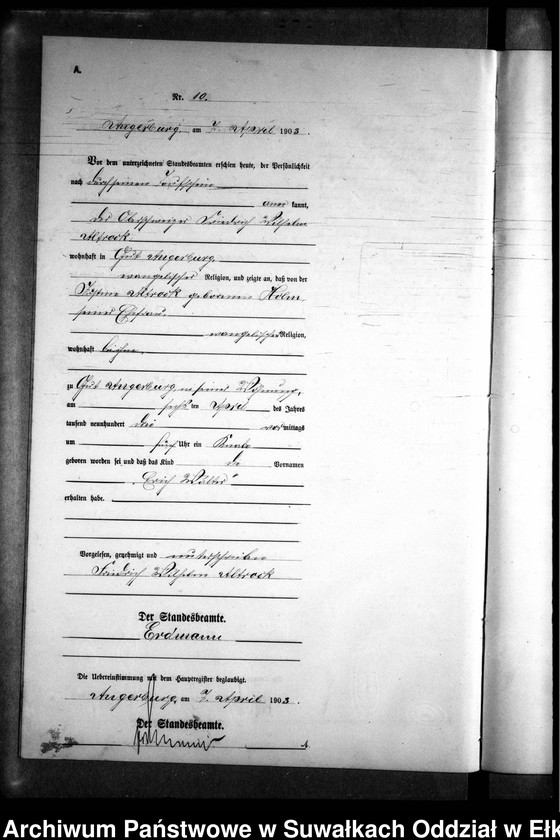 A.
Nr. 10.
Angerburg, am 7. April 1903.
Vor dem unterzeichneten Standesbeamten erschien heute, der Persönlichkeit
nach durch seinen Taufschein
anerkannt,
der Oberschweizer Friedrich Wilhelm
Altrock
wohnhaft in Gut Angerburg,
evangelischer Religion, und zeigte an, daß von der
Altrock geborenen Holm
seiner Ehefrau,
evangelischer Religion,
wohnhaft bei ihm,
zu Gut Angerburg in seiner Wohnung,
am sechsten April des Jahres
tausend neunhundert drei vormittags
um fünf Uhr ein Knabe
geboren worden sei und daß das Kind die Vornamen
„Erich Walter“
erhalten habe.
Vorgelesen, genehmigt und unterschrieben
Friedrich Wilhelm Altrock
Der Standesbeamte.
Erdmann
Die Uebereinstimmung mit dem Hauptregister beglaubigt.
Angerburg, am 7. April 1903.
Der Standesbeamte.
Erdmann
Archiwum Państwowe w Suwałkach Oddział w Ełk